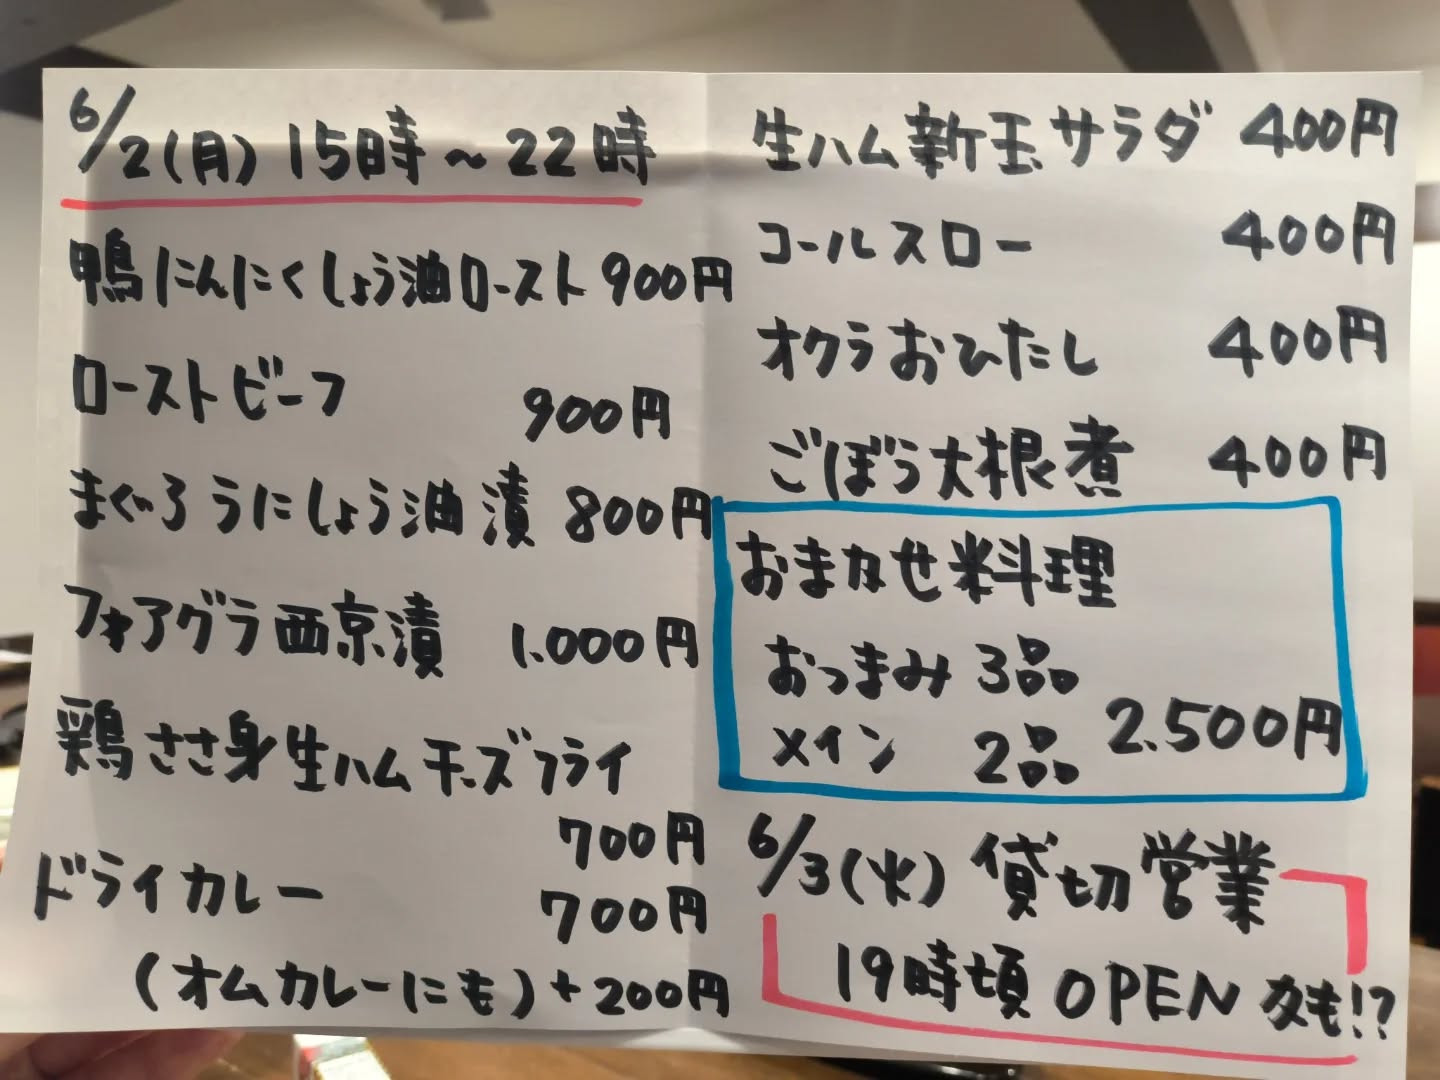 6/2(月) 15時~22時
鴨にんにくしょう油ロースト 900円
ローストビーフ 900円
まぐろうにしょう油漬 800円
フォアグラ西京漬 1.000円
鶏ささ身生ハムチーズフライ
700円
ドライカレー 700円
(オムカレーにも)+200円
生ハム新玉サラダ 400円
コールスロー 400円
オクラおひたし 400円
ごぼう大根煮 400円
おまかせ料理
おつまみ 3品
メイン 2品 2.500円
6/3(火) 貸切営業
19時頃 OPENかも!?